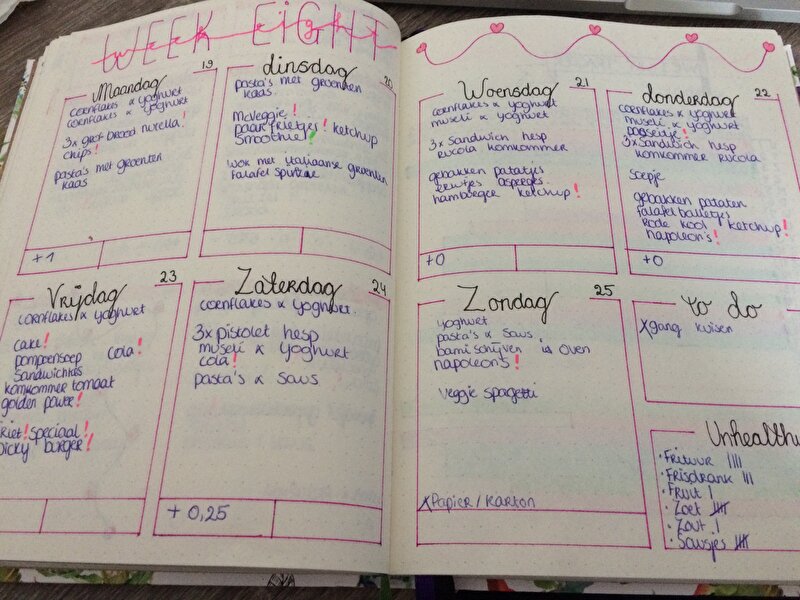 WEEK EIGHT
19
Maandag
cornflakes & yoghurt
cornflakes & yoghurt
3x groot brood nutella!
chips!
pasta's met groenten
kaas
+1
20
dinsdag
pasta's met groenten
kaas
Mcveggie!
paar frietjes! ketchup
Smoothie!
wok met italiaanse groenten
Falafel spinazie
21
Woensdag
cornflakes & yoghurt
museli & yoghurt
3x Sandwich hesp
Rucola komkommer
gebakken patatjes
erwtjes asperges
hamburger ketchup!
+0
22
donderdag
cornflakes & yoghurt
museli & yoghurt
paaseitje!
3x Sandwich hesp
komkommer rucola
Soepje
gebakken pataten
falafelballetjes
Rode kool ketchup!
napoleon's!
+0
23
Vrijdag
cornflakes & yoghurt
cake!
pompoensoep cola!
Sandwichtes
komkommer tomaat
golden power!
Friet! Speciaal!
Bicky burger!
24
Zaterdag
cornflakes & yoghurt.
3x pistolet hesp
museli & yoghurt
cola!
pasta's & saus
+ 0,25
25
Zondag
yoghurt
pasta's & saus
bami schijven in oven
napoleon's!
veggie spagetti
x Papier / karton
to do
x gang kuisen
Unhealthy
· Frituur ||||
· Frisdrank |||
· Fruit |
· Zoet ||||
· Zout |
· Sausjes ||||